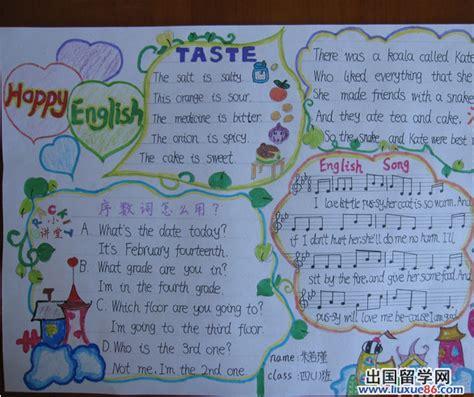 Happy
English
TASTE
The salt is salty.
This orange is sour.
The medicine is bitter.
The onion is spicy.
The cake is sweet.
There was a koala called Kate
Who liked everything that she
She made friends with a snake
And they ate tea and cake,
So the snake and Kate were best
English Song
I love little pussy, her coat is so warm. And
if I don't hurt her, she'll do me no harm. I'll
sit by the fire, and give her some food. And
pus-sy will love me be-cause I am good
小
讲堂
序数词怎么用?
A. What's the date today?
It's February fourteenth.
B. What grade are you in?
I'm in the fourth grade.
C. Which floor are you going to?
I'm going to the third floor.
D. Who is the 3rd one?
Not me. I'm the 2nd one
name:
class: 四(1)班
出国留学网
www.liuxue86.com